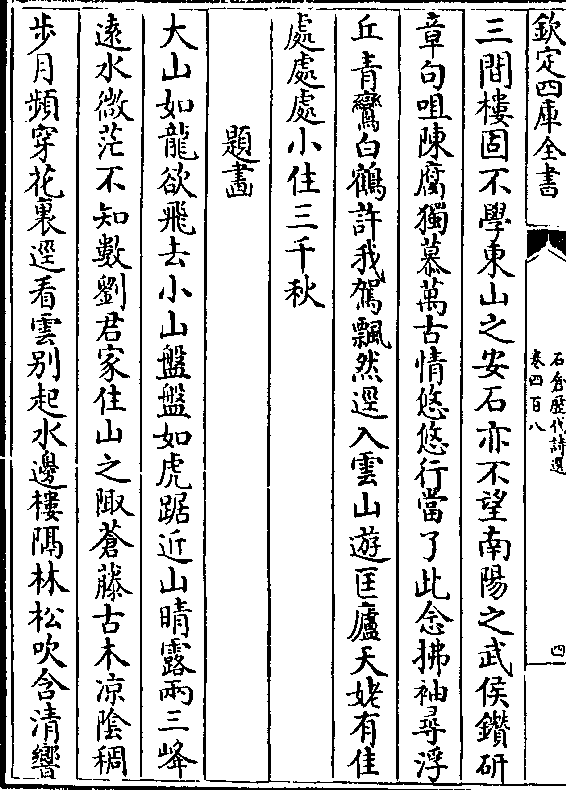 欽定四庫全書
石倉歷代詩選
卷四百八
四
三間樓固不學東山之安石亦不望南陽之武侯鑽研
章句咀陳腐獨慕萬古情悠悠行當了此念拂袖尋浮
丘青鸞白鶴許我駕飄然逕入雲山遊匡廬天姥有佳
處處處小住三千秋
題畫
大山如龍欲飛去小山盤盤如虎踞近山晴露兩三峰
遠水微茫不知數劉君家住山之陬蒼藤古木凉陰稠
步月頻穿花裏逕看雲别起水邊樓隔林松吹含清響